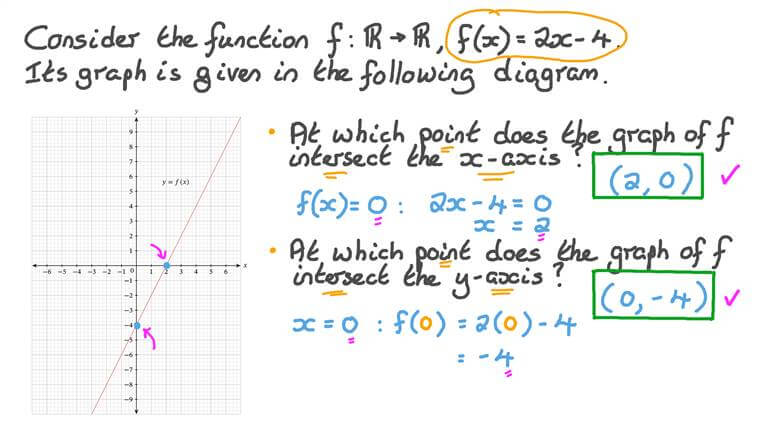 Consider the function f : ℝ → ℝ, f(x) = 2x - 4.
Its graph is given in the following diagram.
y
9
8
7
6
y = f(x)
5
4
3
2
1
-6 -5 -4 -3 -2 -1 0 1 2 3 4 5 6 x
-1
-2
-3
-4
-5
-6
-7
-8
-9
• At which point does the graph of f
intersect the x-axis ?
(2, 0) ✓
f(x) = 0 : 2x - 4 = 0
x = 2
• At which point does the graph of f
intersect the y-axis ?
(0, -4) ✓
x = 0 : f(0) = 2(0) - 4
= -4